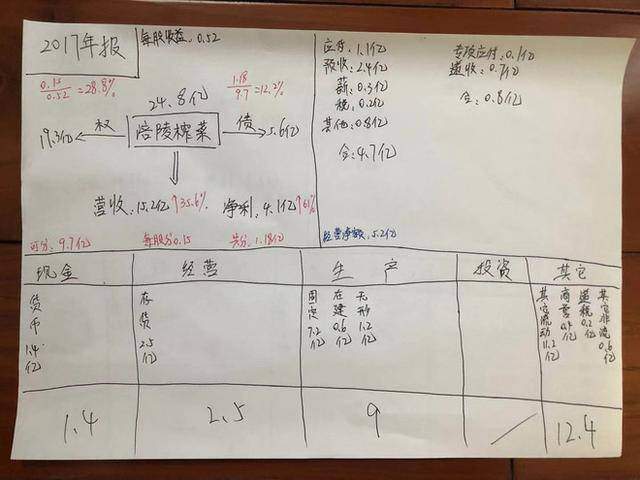 2017年报
每股收益,0.52
0.15/0.52=28.8%
1.18/9.7=12.2%
24.8亿
19.3亿 ← 权 涪陵榨菜 债 → 5.6亿
营收,15.2亿↑35.6% 净利,4.1亿↑61%
可分,9.7亿 每股分0.15 共分,1.18亿
应付,1.1亿
预收,2.4亿
薪,0.3亿
税,0.2亿
其他,0.8亿
合,4.7亿
专项应付,0.1亿
递收,0.7亿
合,0.8亿
经营净额,5.2亿
现金 经营 生产 投资 其它
货币1.4亿
存货2.5亿
固定7.2亿
在建0.6亿
无形1.2亿
其它流动11.2亿
商誉0.4亿
递税0.2亿
其它非流0.6亿
1.4 2.5 9 / 12.4